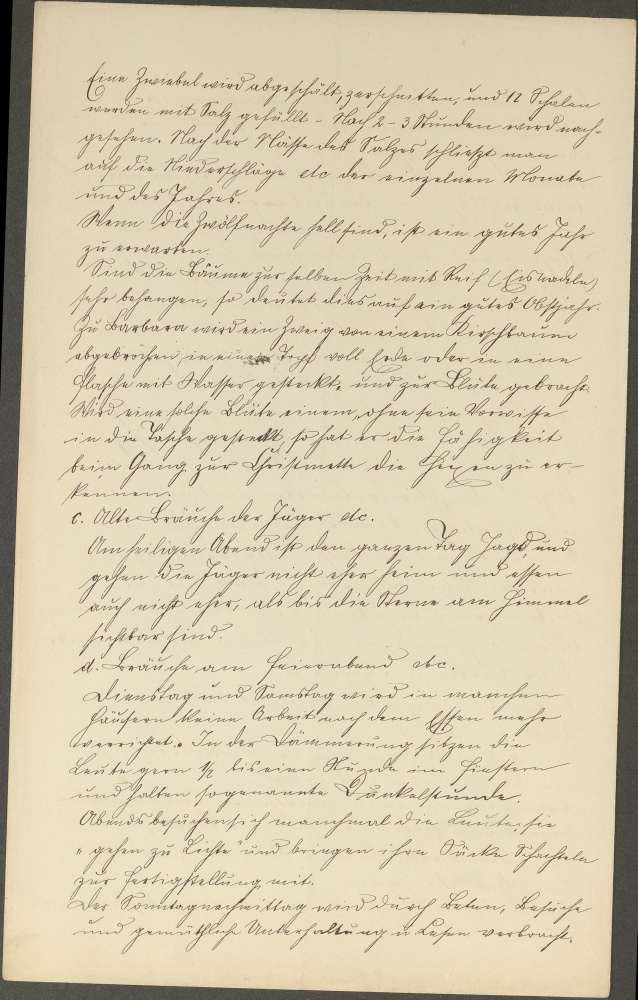 Eine Zwiebel wird abgeschält, zerschnitten, und 12 Schalen
werden mit Salz gefüllt – Nach 2 – 3 Stunden wird nach-
gesehen. Nach der Nässe des Salzes schließt man
auf die Niederschläge etc der einzelnen Monate
und des Jahres.
Wenn die Zwölfnächte hell sind, ist ein gutes Jahr
zu erwarten.
Sind die Bäume zur selben Zeit mit Reif (Eisnadeln)
sehr behangen, so deutet dies auf ein gutes Obstjahr.
Zu Barbara wird ein Zweig von einem Kirschbaum
abgebrochen, in einen Topf voll Erde oder in eine
Flasche mit Wasser gesteckt, und zur Blüte gebracht.
Wird eine solche Blüte einem, ohne sein Vorwisse
in die Tasche gesteckt, so hat er die Fähigkeit
beim Gang zur Christmette die Hexen zu er-
kennen.
c. Alte Bräuche der Jäger etc.
Am heiligen Abend ist den ganzen Tag Jagd, und
gehen die Jäger nicht eher heim und essen
auch nicht eher, als bis die Sterne am Himmel
sichtbar sind.
d. Bräuche am Feierabend etc.
Dienstag und Samstag wird in manchen
Häusern keine Arbeit nach dem Essen mehr
verrichtet. In der Dämmerung sitzen die
Leute gern ½ bis eine Stunde im Finstern
und halten sogenannte Dunkelstunde.
Abends besuchen sich manchmal die Leute, sie
"gehen zu Lichte" und bringen ihre Säcke Schachteln
zur Fertigstellung mit.
Der Sonntagnachmittag wird durch Beten, Besuche
und gemüthliche Unterhaltung u Lesen verbracht.